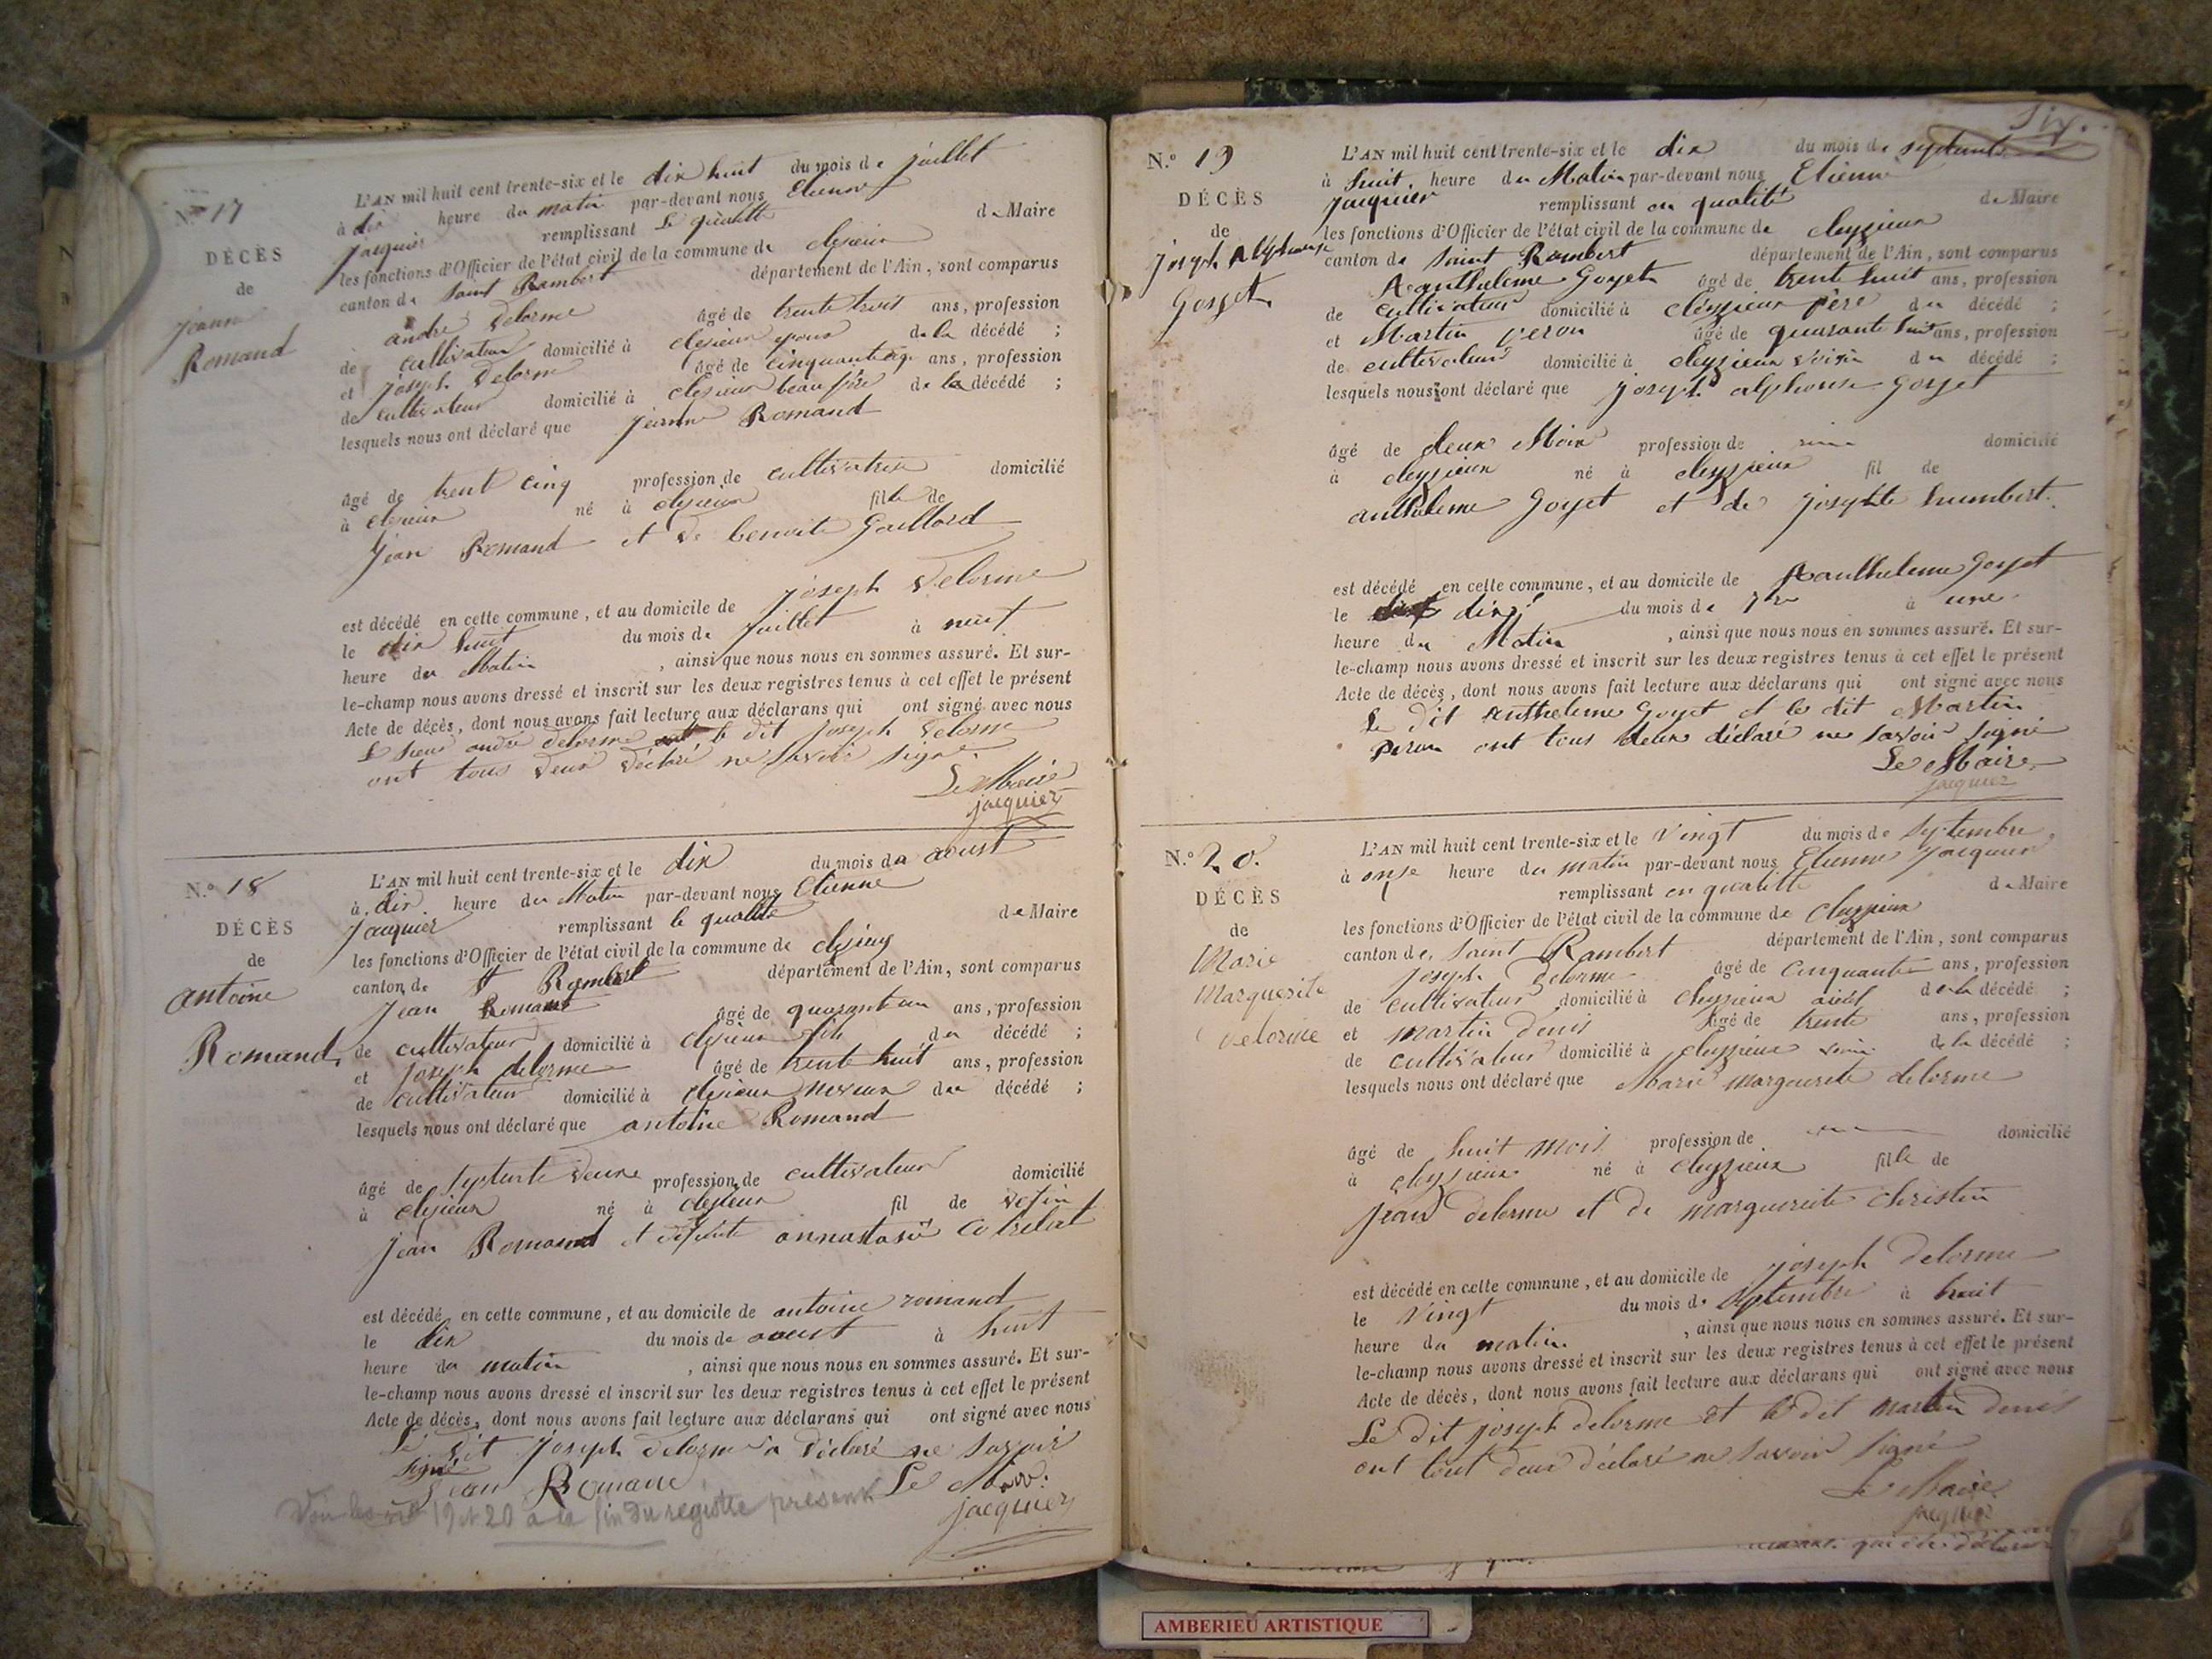 N.º 17
DÉCÈS
de
jeanne
Romand
L'AN mil huit cent trente-six et le dix huit du mois de juillet
à dix heure du matin par-devant nous Etienne
jacquier remplissant le qualitté de Maire
les fonctions d'Officier de l'état civil de la commune de clesieux
canton de saint Rambert département de l'Ain, sont comparus
andré Delorme âgé de trente trois ans, profession
de cultivateur domicilié à clesieux epoux de la décédé ;
et joseph Delorme âgé de cinquante ans, profession
de cultivateur domicilié à clesieux beau père de la décédé ;
lesquels nous ont déclaré que jeanne Romand
âgé de trent cinq profession de cultivatrix domicilié
à clesieux né à clesieux fille de
jean Romand et de benoite Gaillard
est décédé en cette commune, et au domicile de joseph Delorme
le dix huit du mois de juillet à neuf
heure du Matin , ainsi que nous nous en sommes assuré. Et sur-
le-champ nous avons dressé et inscrit sur les deux registres tenus à cet effet le présent
Acte de décès, dont nous avons fait lecture aux déclarans qui ont signé avec nous
le sieur andré Delorme le dit joseph Delorme
ont tous deux déclaré ne savoir signé
Le Maire
jacquier
N.º 18
DÉCÈS
de
antoine
Romand
L'AN mil huit cent trente-six et le dix du mois du aoust
à dix heure du Matin par-devant nous Etienne
jacquier remplissant le qualité de Maire
les fonctions d'Officier de l'état civil de la commune de clesieux
canton de St Rambert département de l'Ain, sont comparus
jean Romand âgé de quarante un ans, profession
de cultivateur domicilié à clesieux fils du décédé ;
et joseph delorme âgé de trente huit ans, profession
de cultivateur domicilié à clesieux neveux du décédé ;
lesquels nous ont déclaré que antoine Romand
âgé de septente deux profession de cultivateur domicilié
à clesieux né à clesieux fil de
jean Romand et annastasie
est décédé en cette commune, et au domicile de antoine romand
le dix du mois de aoust à huit
heure du matin , ainsi que nous nous en sommes assuré. Et sur-
le-champ nous avons dressé et inscrit sur les deux registres tenus à cet effet le présent
Acte de décès, dont nous avons fait lecture aux déclarans qui ont signé avec nous
Le dit joseph delorme a déclaré ne savoir
signé
jean Romand Le Maire
jacquier
Voir les nos 19 et 20 à la fin du registre présent
N.º 19
DÉCÈS
de
joseph Alphonse
Goyet
L'AN mil huit cent trente-six et le dix du mois de septembre
à huit heure du Matin par-devant nous Etienne
jacquier remplissant en qualité de Maire
les fonctions d'Officier de l'état civil de la commune de cleyzieux
canton de saint Rambert département de l'Ain, sont comparus
Antheleme Goyet âgé de trente huit ans, profession
de cultivateur domicilié à cleyzieux père du décédé ;
et Martin peron âgé de quarante huit ans, profession
de cultivateur domicilié à cleyzieux voisin du décédé ;
lesquels nous ont déclaré que joseph alphonse Goyet
âgé de deux Mois profession de domicilié
à cleyzieux né à cleyzieux fil de
antheleme Goyet et de josephte humbert
est décédé en cette commune, et au domicile de Antheleme Goyet
le dix du mois de 7bre à une
heure du Matin , ainsi que nous nous en sommes assuré. Et sur-
le-champ nous avons dressé et inscrit sur les deux registres tenus à cet effet le présent
Acte de décès, dont nous avons fait lecture aux déclarans qui ont signé avec nous
Le dit Antheleme Goyet et le dit Martin
peron ont tous deux déclaré ne savoir signé
Le Maire
jacquier
N.º 20.
DÉCÈS
de
Marie
Marguerite
Delorme
L'AN mil huit cent trente-six et le Vingt du mois de septembre
à onze heure du matin par-devant nous Etienne jacquier
remplissant en qualitté de Maire
les fonctions d'Officier de l'état civil de la commune de cleyzieux
canton de saint Rambert département de l'Ain, sont comparus
joseph Delorme âgé de cinquante ans, profession
de cultivateur domicilié à cleyzieux aieul de la décédé ;
et martin denis âgé de trente ans, profession
de cultivateur domicilié à cleyzieux voisin de la décédé ;
lesquels nous ont déclaré que Marie marguerite delorme
âgé de huit mois profession de domicilié
à cleyzieux né à cleyzieux fille de
jean delorme et de marguerite christin
est décédé en cette commune, et au domicile de joseph delorme
le Vingt du mois de septembre à huit
heure du matin , ainsi que nous nous en sommes assuré. Et sur-
le-champ nous avons dressé et inscrit sur les deux registres tenus à cet effet le présent
Acte de décès, dont nous avons fait lecture aux déclarans qui ont signé avec nous
Le dit joseph delorme et le dit martin denis
ont tout deux déclaré ne savoir signé
Le Maire
jacquier
AMBERIEU ARTISTIQUE